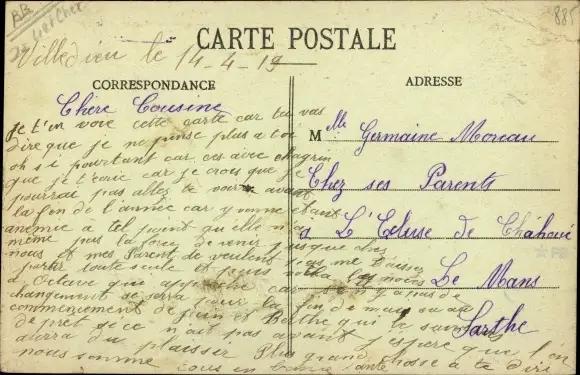 BB
Loir et Cher
885
Villedieu le 14-4-19
CARTE POSTALE
CORRESPONDANCE
ADRESSE
Chère Cousine
je t'en voie cette carte car tu vas
dire que je ne pense plus a toi
oh si pourtant car ces avec chagrin
que je t'ecrie car je crois que je
pourrai pas allez te voir avant
la fen de l'année car yvonne étant
anemie a tel point qu elle n'a
même pas la force de venir jusque chez
nous et mes Parent ne veulent pas me laisser
partir toute seule et puis voila les noces
a Octave qui approche car
changement se serra pour la fin de mai ou au
commencement de juin et Berthe qui te
de pret ce n'ait pas avant j'espère que l'on
aura du plaisir Plus grand chosse a te dire
nous somme tous en bonne santé
Mlle Germaine Moreau
Chez ses Parents
a L'Ecluse de Châhoué
Le Mans
Sarthe